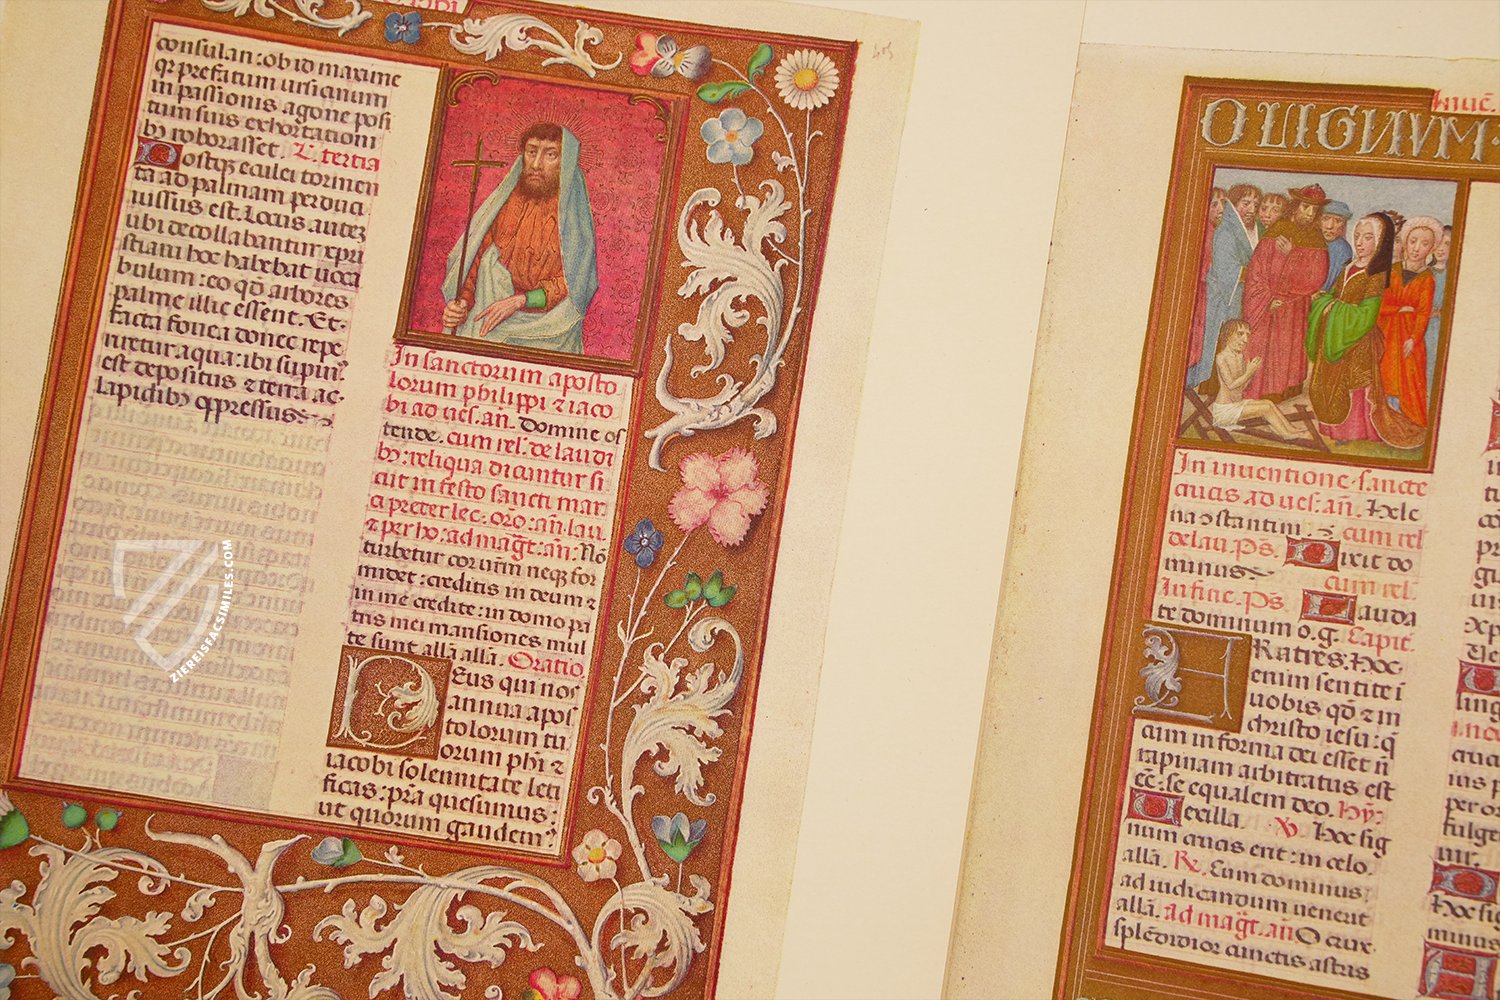 consulari: ob id maxime
qꝛ prefatum ursicinum
in passionis agone posi
tum suis exhortationi
bꝰ roborasset. L. tertia
Postqꝫ eculei tormen
ta ad palmam perduci
iussus est. Locus autez
ubi decollabantur xpri
stiani hoc habebat uoca
bulum: eo qď arbores
palme illic essent. Et
facta fouea donec repe
niretur aqua: ibi supinꝰ
est depositus ⁊ terra ac
lapidibꝰ oppressus.
In sanctorum aposto
lorum philippi ⁊ iaco
bi ad ues. añ. Domine os
tende. cum rel. de laudi
bꝰ: reliqua dicuntur si
cut in festo sancti mar
ci preter lec. oro: añ. lau.
⁊ per ho: ad mag̃t. añ: Nõ
turbetur cor uřm neqꝫ for
midet: creditis in deum ⁊
in me credite: in domo pa
tris mei mansiones mul
te sunt allã. allã. Oratio.
Deus qui nos
annua apos
tolorum tu
orum phi ⁊
iacobi solennitate leti
ficas: pr̃a quesumus:
ut quorum gaudemꝰ
ZIEREISFACSIMILES.COM
O LIGNVM
Inuẽ.
In inuentione sancte
crucis ad ues. añ. Hele
na ɔstantini. cum rel
de lau. Ps. Dixit do
minus. cum rel.
In fine. Ps. Lauda
te dominum o. g. Capit.
FRatres: Hoc
enim sentite ĩ
uobis qď ⁊ in
christo iesu: q̃
cum in forma dei esset ñ
rapinam arbitratus est
eẽ: se equalem deo. Hy:
Uexilla. V. Hoc sig
num crucis erit: in celo.
allã. R. Cum dominus
ad iudicandum uenerit
allã. ad mag̃t. añ O crux
splẽdidior cunctis astris